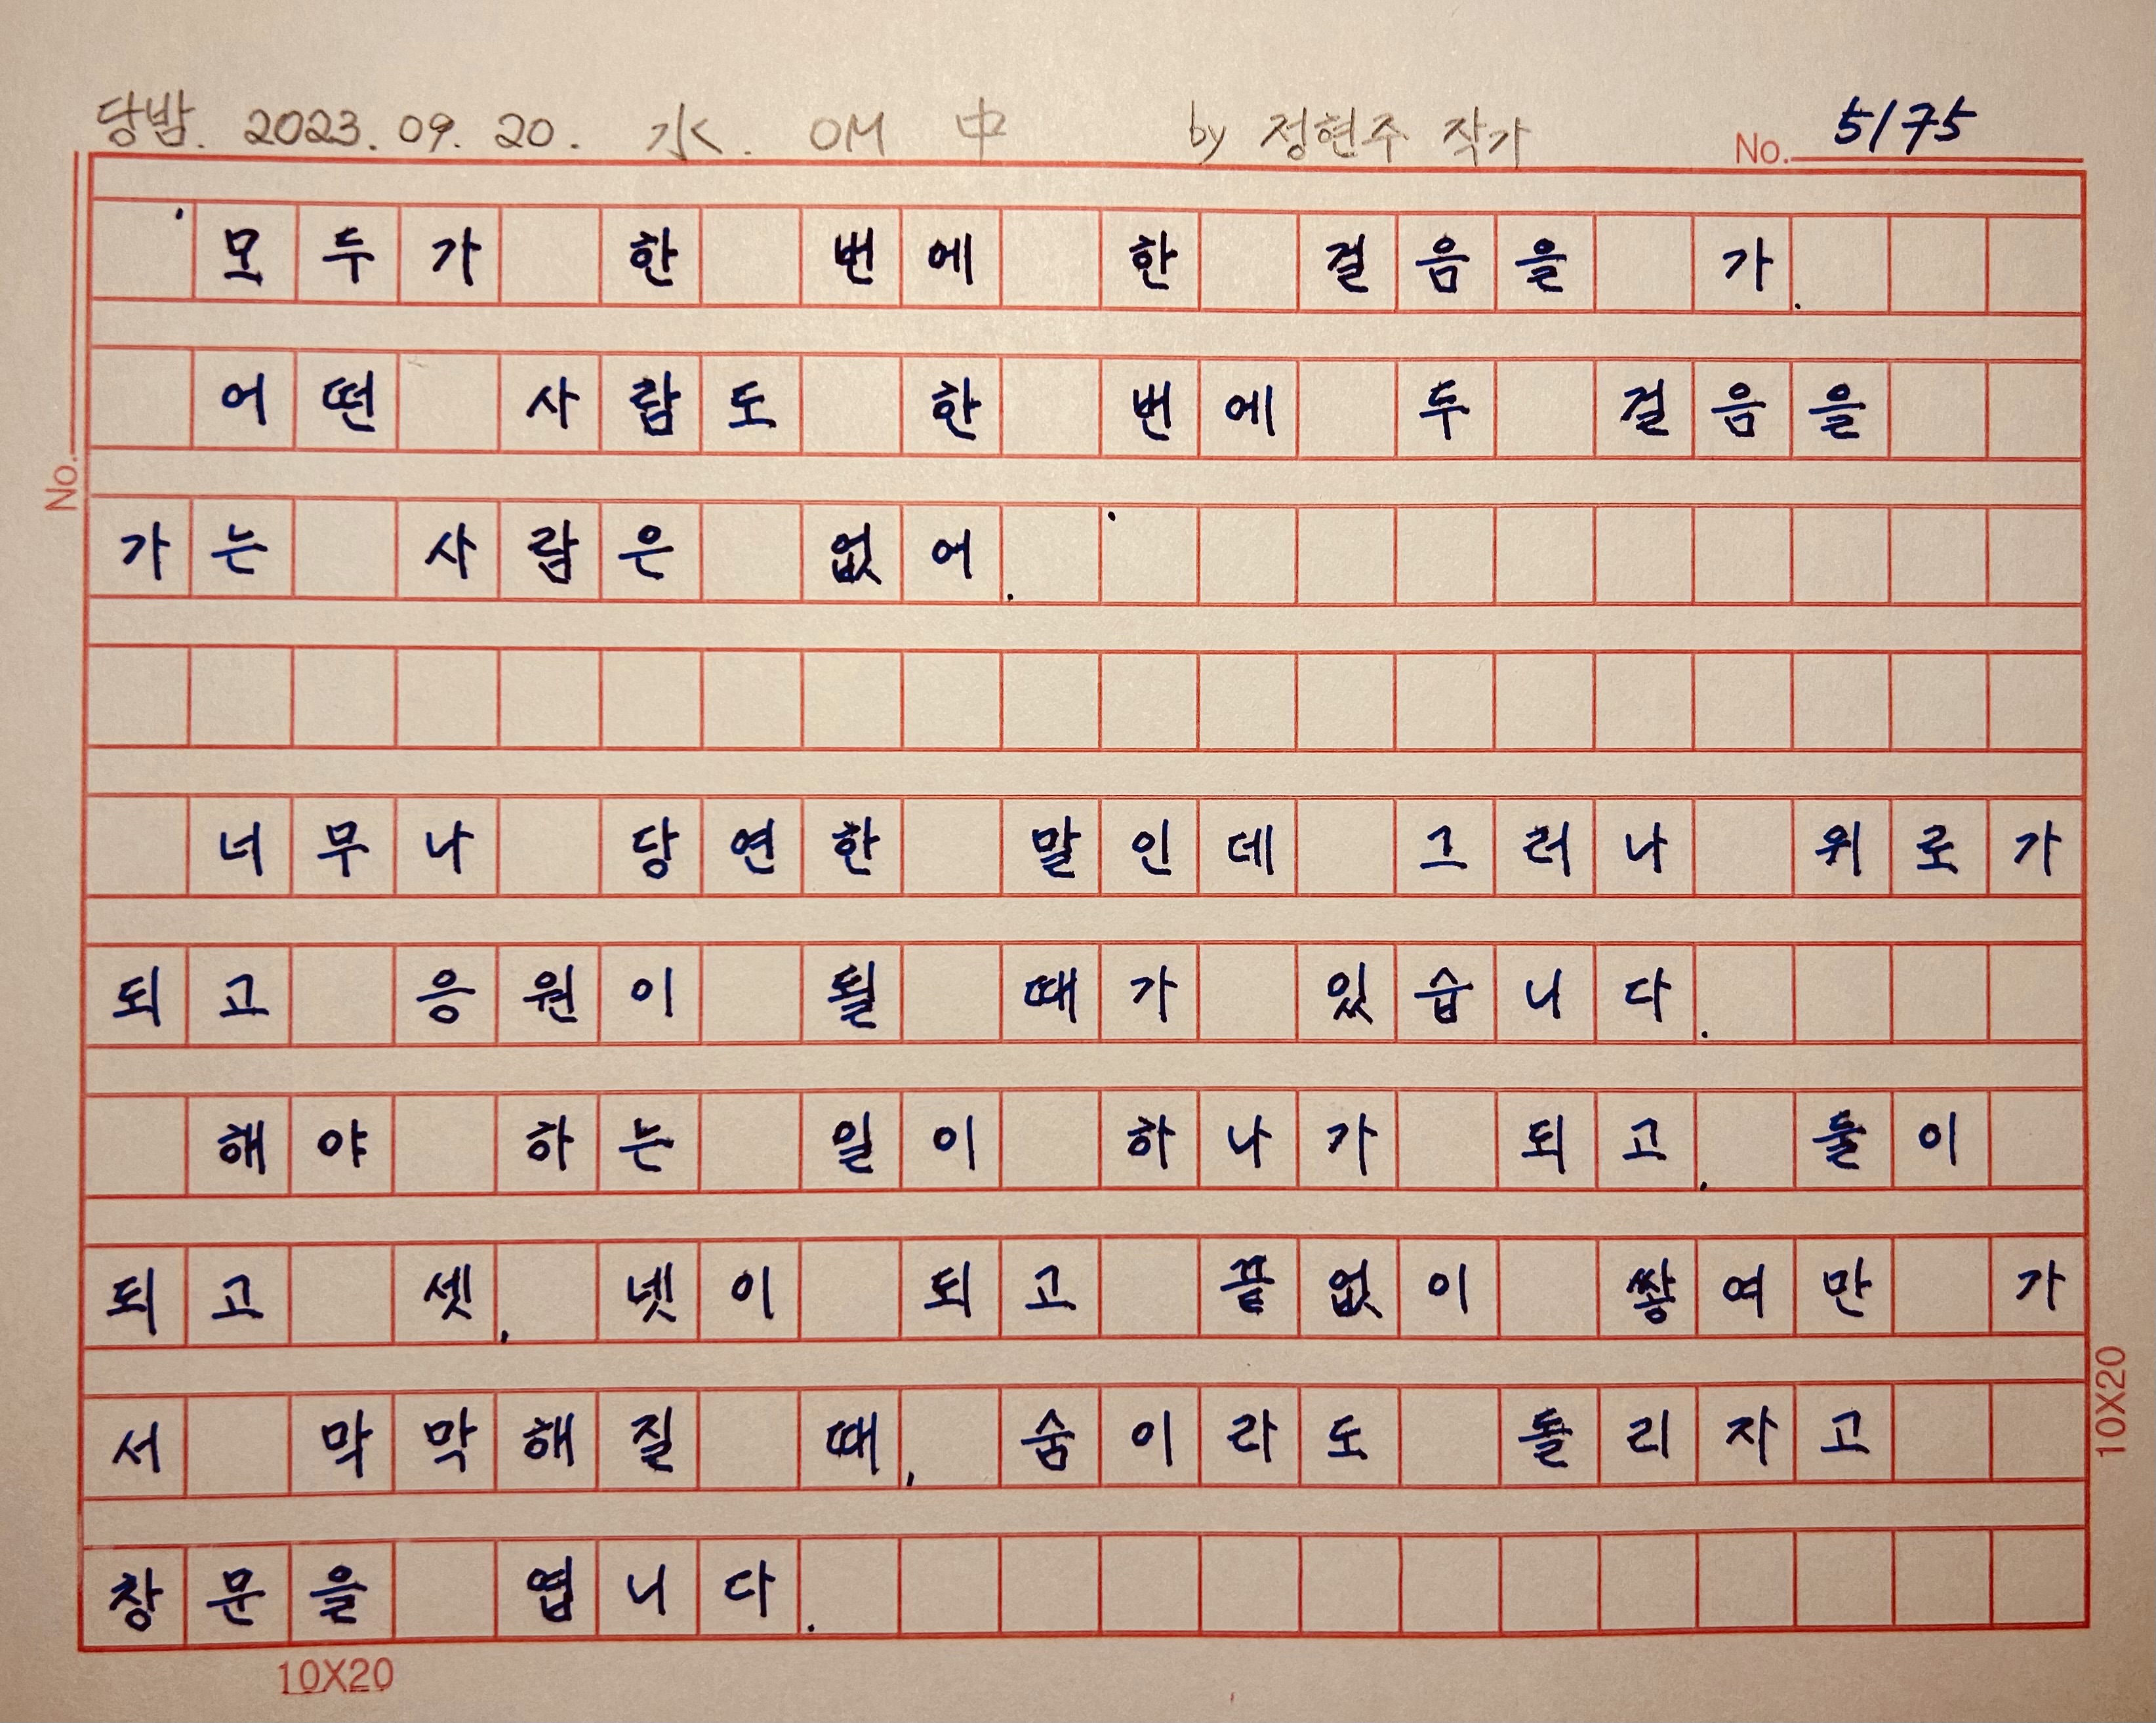 당밤. 2023. 09. 20. 水. OM 中 by 정현주 작가 No. 5/75
' 모두가 한 번에 한 걸음을 가.
어떤 사람도 한 번에 두 걸음을
No.
가는 사람은 없어. '
너무나 당연한 말인데 그러나 위로가
되고 응원이 될 때가 있습니다.
해야 하는 일이 하나가 되고, 둘이
되고 셋, 넷이 되고 끝없이 쌓여만 가
서 막막해질 때, 숨이라도 돌리자고
10X20
창문을 엽니다.
10X20